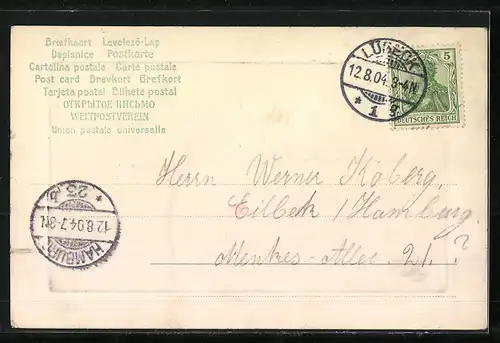 Briefkaart Levelező-Lap
Dopisnice Postkarte
Cartolina postale Carte postale
Post card Brevkort Brefkort
Tarjeta postal Bilhete postal
ОТКРЫТОЕ ПИСЬМО
WELTPOSTVEREIN
Union postale universelle
LÜBECK
12.8.04.8-4N
* 1
5
DEUTSCHES REICH
Herrn Werner Köberg,
Eilbek / Hamburg
Menkes-Allee 21. ?
HAMBURG
12.8.04.7-8N
* 23